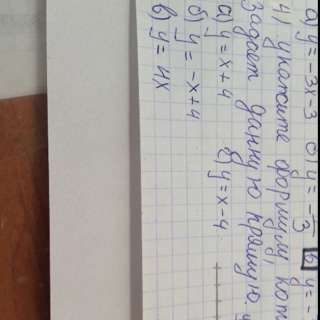 а) y = -3x - 3 б) y = - 3 в) y = -
4) укажите формулу, кот
задает данную прямую.
а) y = x + 4 г) y = x - 4
б) y = -x + 4
в) y = 4x